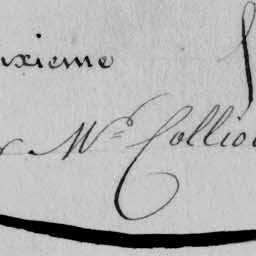 uxieme
Mr Collio